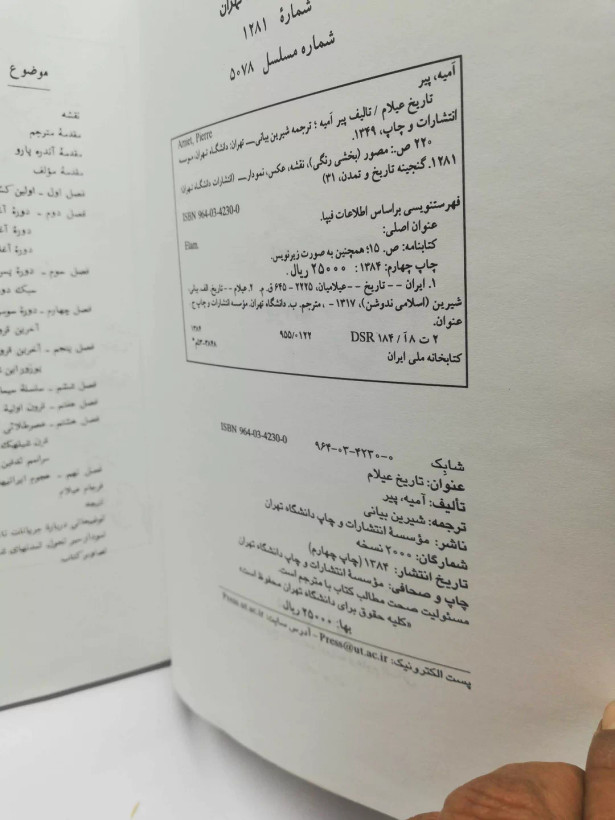 تهران
شمارهٔ ۱۲۸۱
شماره مسلسل ۵۰۷۸
آمیه، پیر
Amiet, Pierre
تاریخ عیلام / تالیف پیر آمیه ؛ ترجمه شیرین بیانی.ـــ تهران: دانشگاه تهران، موسسه
انتشارات و چاپ، ۱۳۴۹.
۲۲۰ ص.: مصور (بخشی رنگی)، نقشه، عکس، نمودار.ـــ (انتشارات دانشگاه تهران
۱۲۸۱. گنجینه تاریخ و تمدن، ۳۱)
ISBN 964-03-4230-0
فهرستنویسی براساس اطلاعات فیپا.
عنوان اصلی:
Elam.
کتابنامه: ص. ۱۵؛ همچنین به صورت زیرنویس.
چاپ چهارم: ۱۳۸۴ : ۲۵۰۰۰ ریال .
۱. ایران -- تاریخ -- عیلامیان، ۲۲۲۵ - ۶۴۵ ق.م. ۲. عیلام -- تاریخ. الف. بیانی،
شیرین (اسلامی ندوشن)، ۱۳۱۷ - ، مترجم. ب. دانشگاه تهران. مؤسسه انتشارات و چاپ. ج.
عنوان.
۲ ت ۸ آ / ۱۸۴ DSR
۹۵۵/۰۱۲۲
کتابخانه ملی ایران
شابک ۰-۴۲۳۰-۰۳-۹۶۴
ISBN 964-03-4230-0
عنوان: تاریخ عیلام
تألیف: آمیه، پیر
ترجمه: شیرین بیانی
ناشر: مؤسسهٔ انتشارات و چاپ دانشگاه تهران
شمارگان: ۲۰۰۰ نسخه
تاریخ انتشار: ۱۳۸۴ (چاپ چهارم)
چاپ و صحافی: مؤسسهٔ انتشارات و چاپ دانشگاه تهران
مسئولیت صحت مطالب کتاب با مترجم است.
«کلیه حقوق برای دانشگاه تهران محفوظ است»
بها: ۲۵۰۰۰ ریال
پست الکترونیک: Press@ut.ac.ir - آدرس سایت: Press ut.ac.ir
موضوع
نقشه
مقدمهٔ مترجم
مقدمهٔ آندره پارو
مقدمهٔ مؤلف
فصل اول - اولین
فصل دوم - دورهٔ
دورهٔ
دورهٔ
فصل سوم - دورهٔ
سبک
فصل چهارم - دورهٔ
آخرین
فصل پنجم - آخرین
فصل ششم - سلسلهٔ
فصل هفتم - قرون اولیهٔ
فصل هشتم - عصر طلائی
فصل نهم - هجوم
فرجام عیلام
تصاویر کتاب